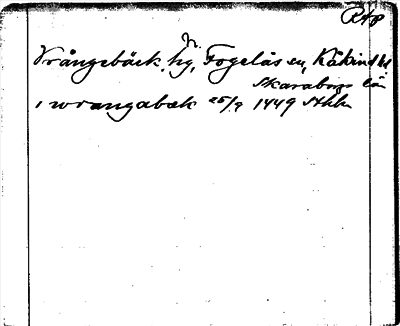 RAP
Vrångsbäck, hg, N. Fogelås sn, Kåkinds hd
Skaraborgs län
i wrangabæk 25/9 1449 Sthlm